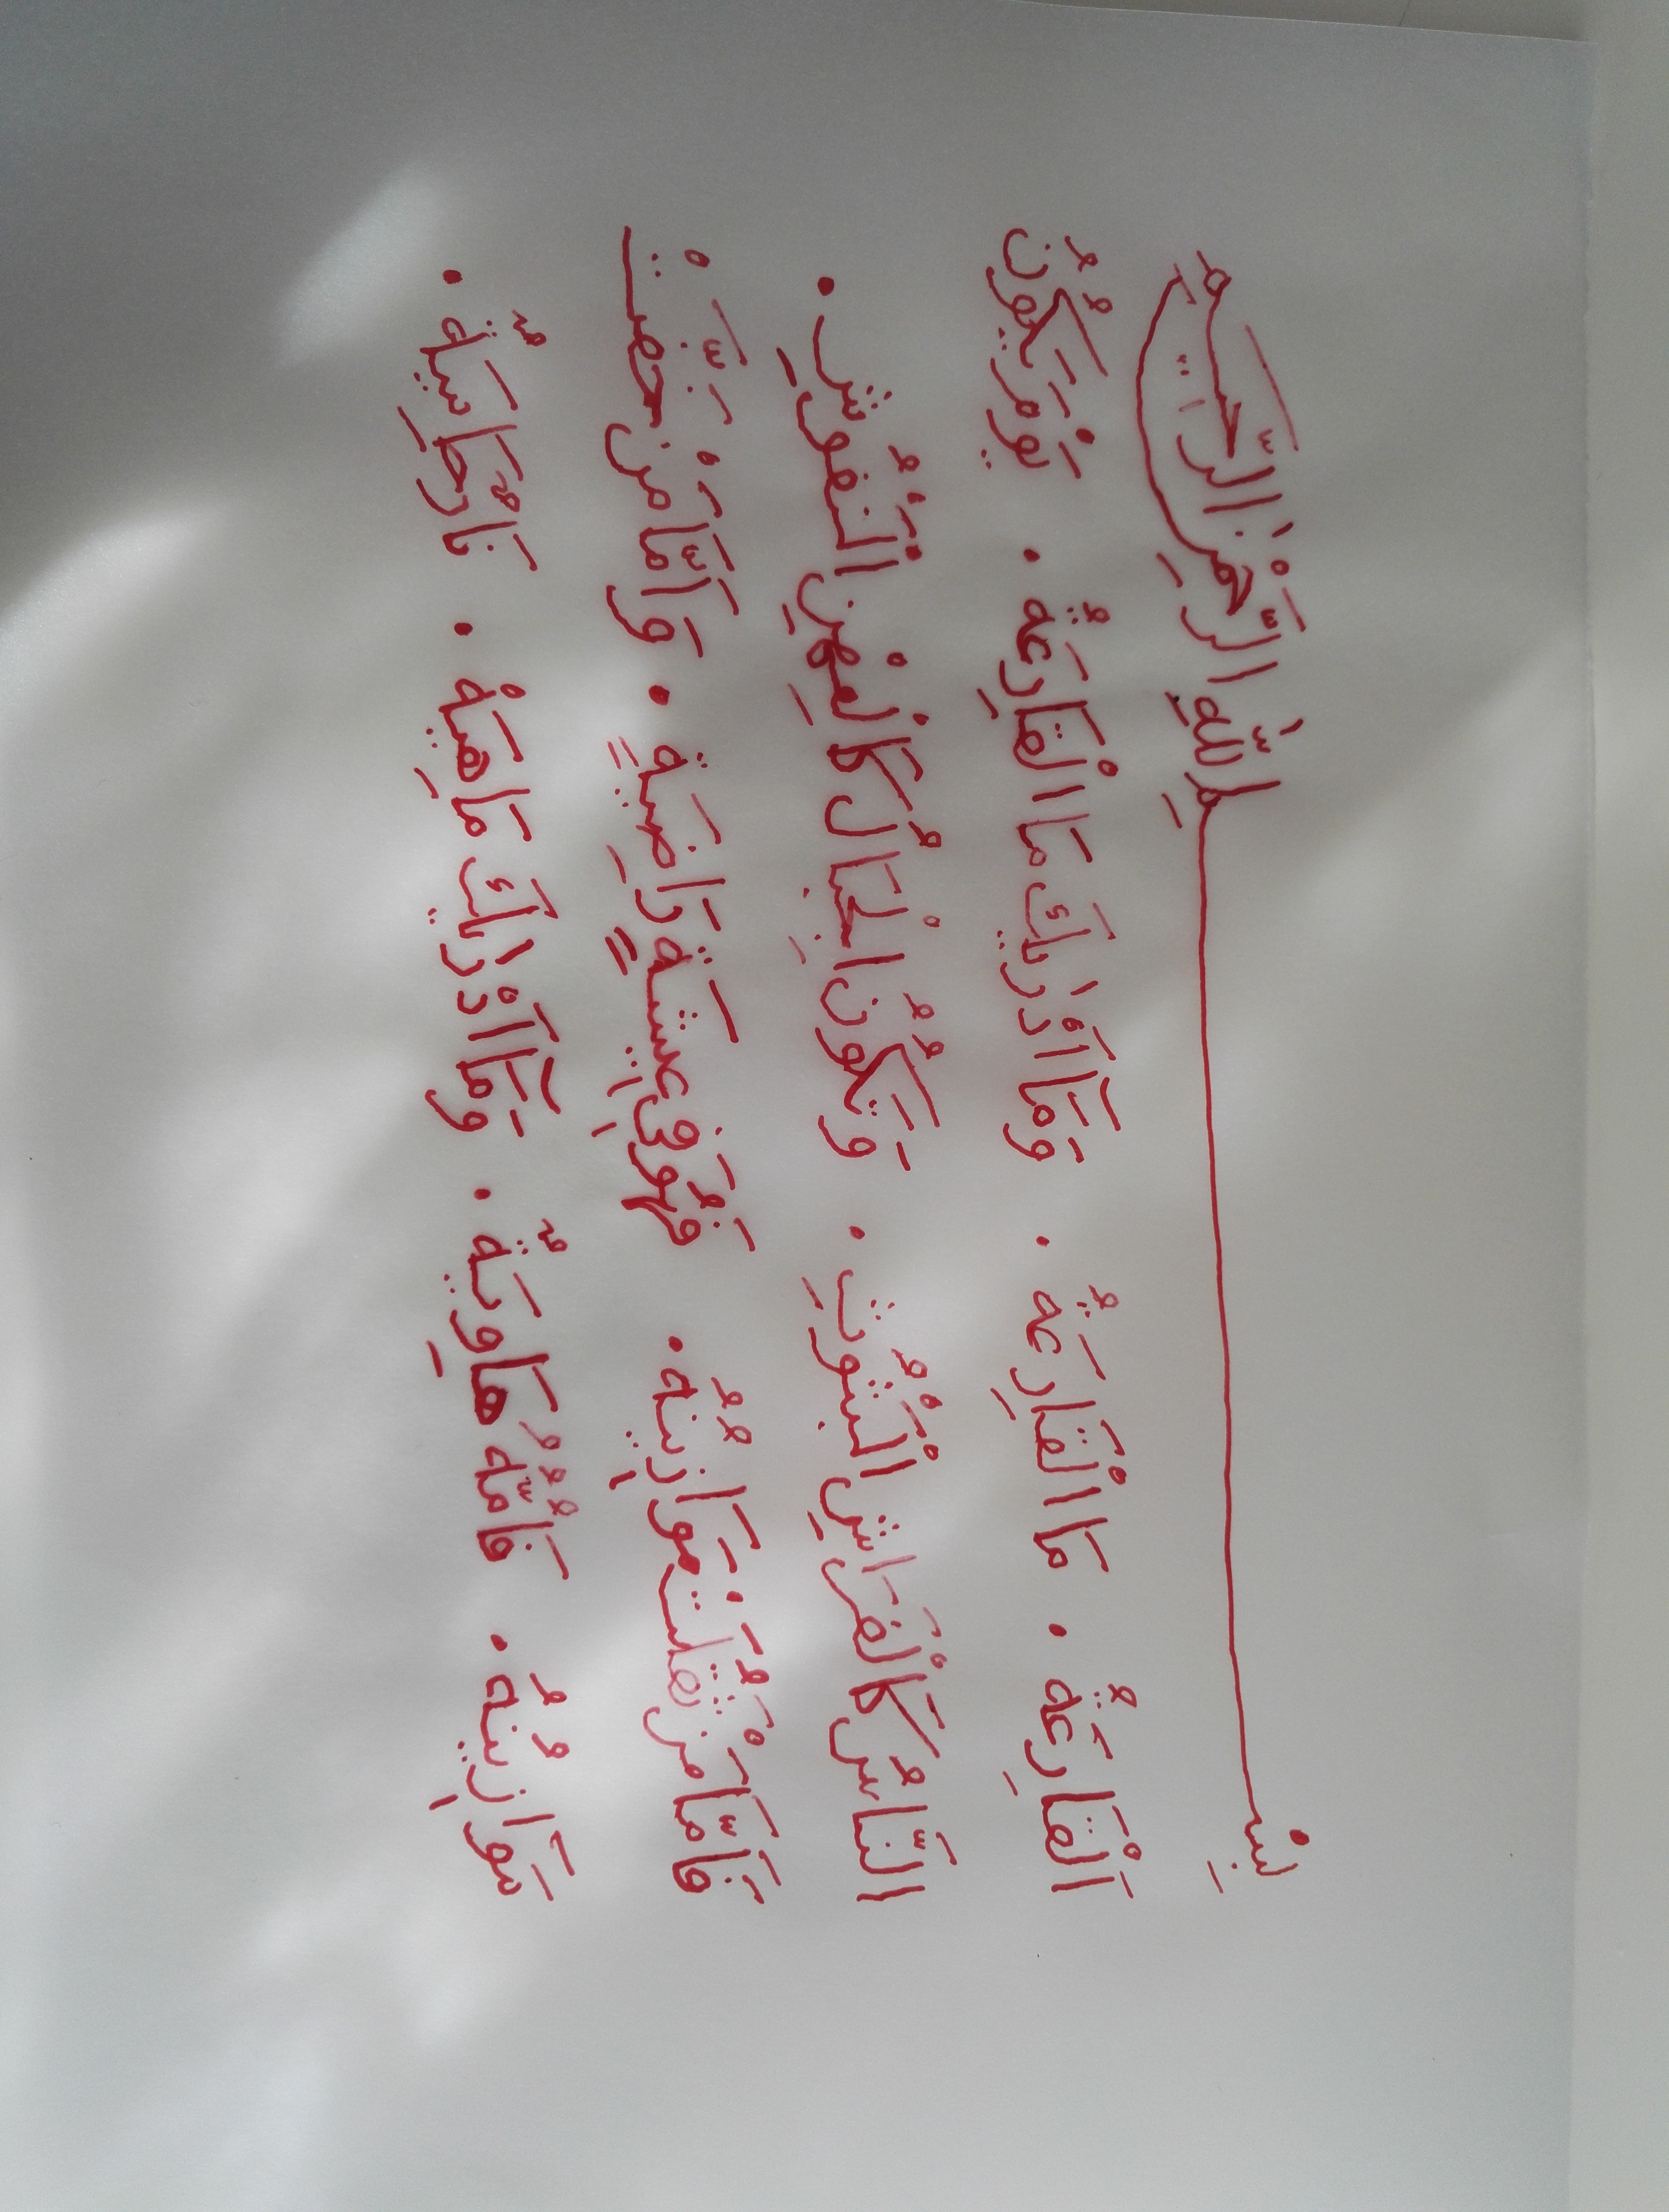 بِسْمِ اللّٰهِ الرَّحْمٰنِ الرَّحِيمِ
اَلْقَارِعَةُ . مَا الْقَارِعَةُ . وَمَآ اَدْرٰيكَ مَا الْقَارِعَةُ . يَوْمَ يَكُونُ
النَّاسُ كَالْفَرَاشِ الْمَبْثُوثِ . وَتَكُونُ الْجِبَالُ كَالْعِهْنِ الْمَنْفُوشِ .
فَاَمَّا مَنْ ثَقُلَتْ مَوَازِينُهُ . فَهُوَ فِي عِيشَةٍ رَاضِيَةٍ . وَاَمَّا مَنْ خَفَّتْ
مَوَازِينُهُ . فَاُمُّهُ هَاوِيَةٌ . وَمَآ اَدْرٰيكَ مَاهِيَهْ . نَارٌ حَامِيَةٌ .